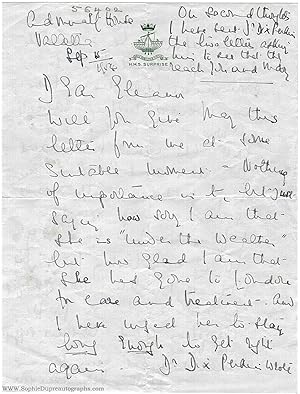 56402
Admiralty House
Valletta
H.M.S. SURPRISE
On second thoughts
I have sent Dr Dix Perkin
the two letters asking
him to see that they
reach you and
Dear Eleanor
Will you give May this
letter from me at some
suitable moment - Nothing
of importance in it, but just
saying how sorry I am that
she is "under the weather"
but how glad I am that
she has gone to London
for care and treatment. And
I have urged her to stay
long enough to get right
again. Dr Dix Perkin wrote
www.SophieDupreAutographs.com